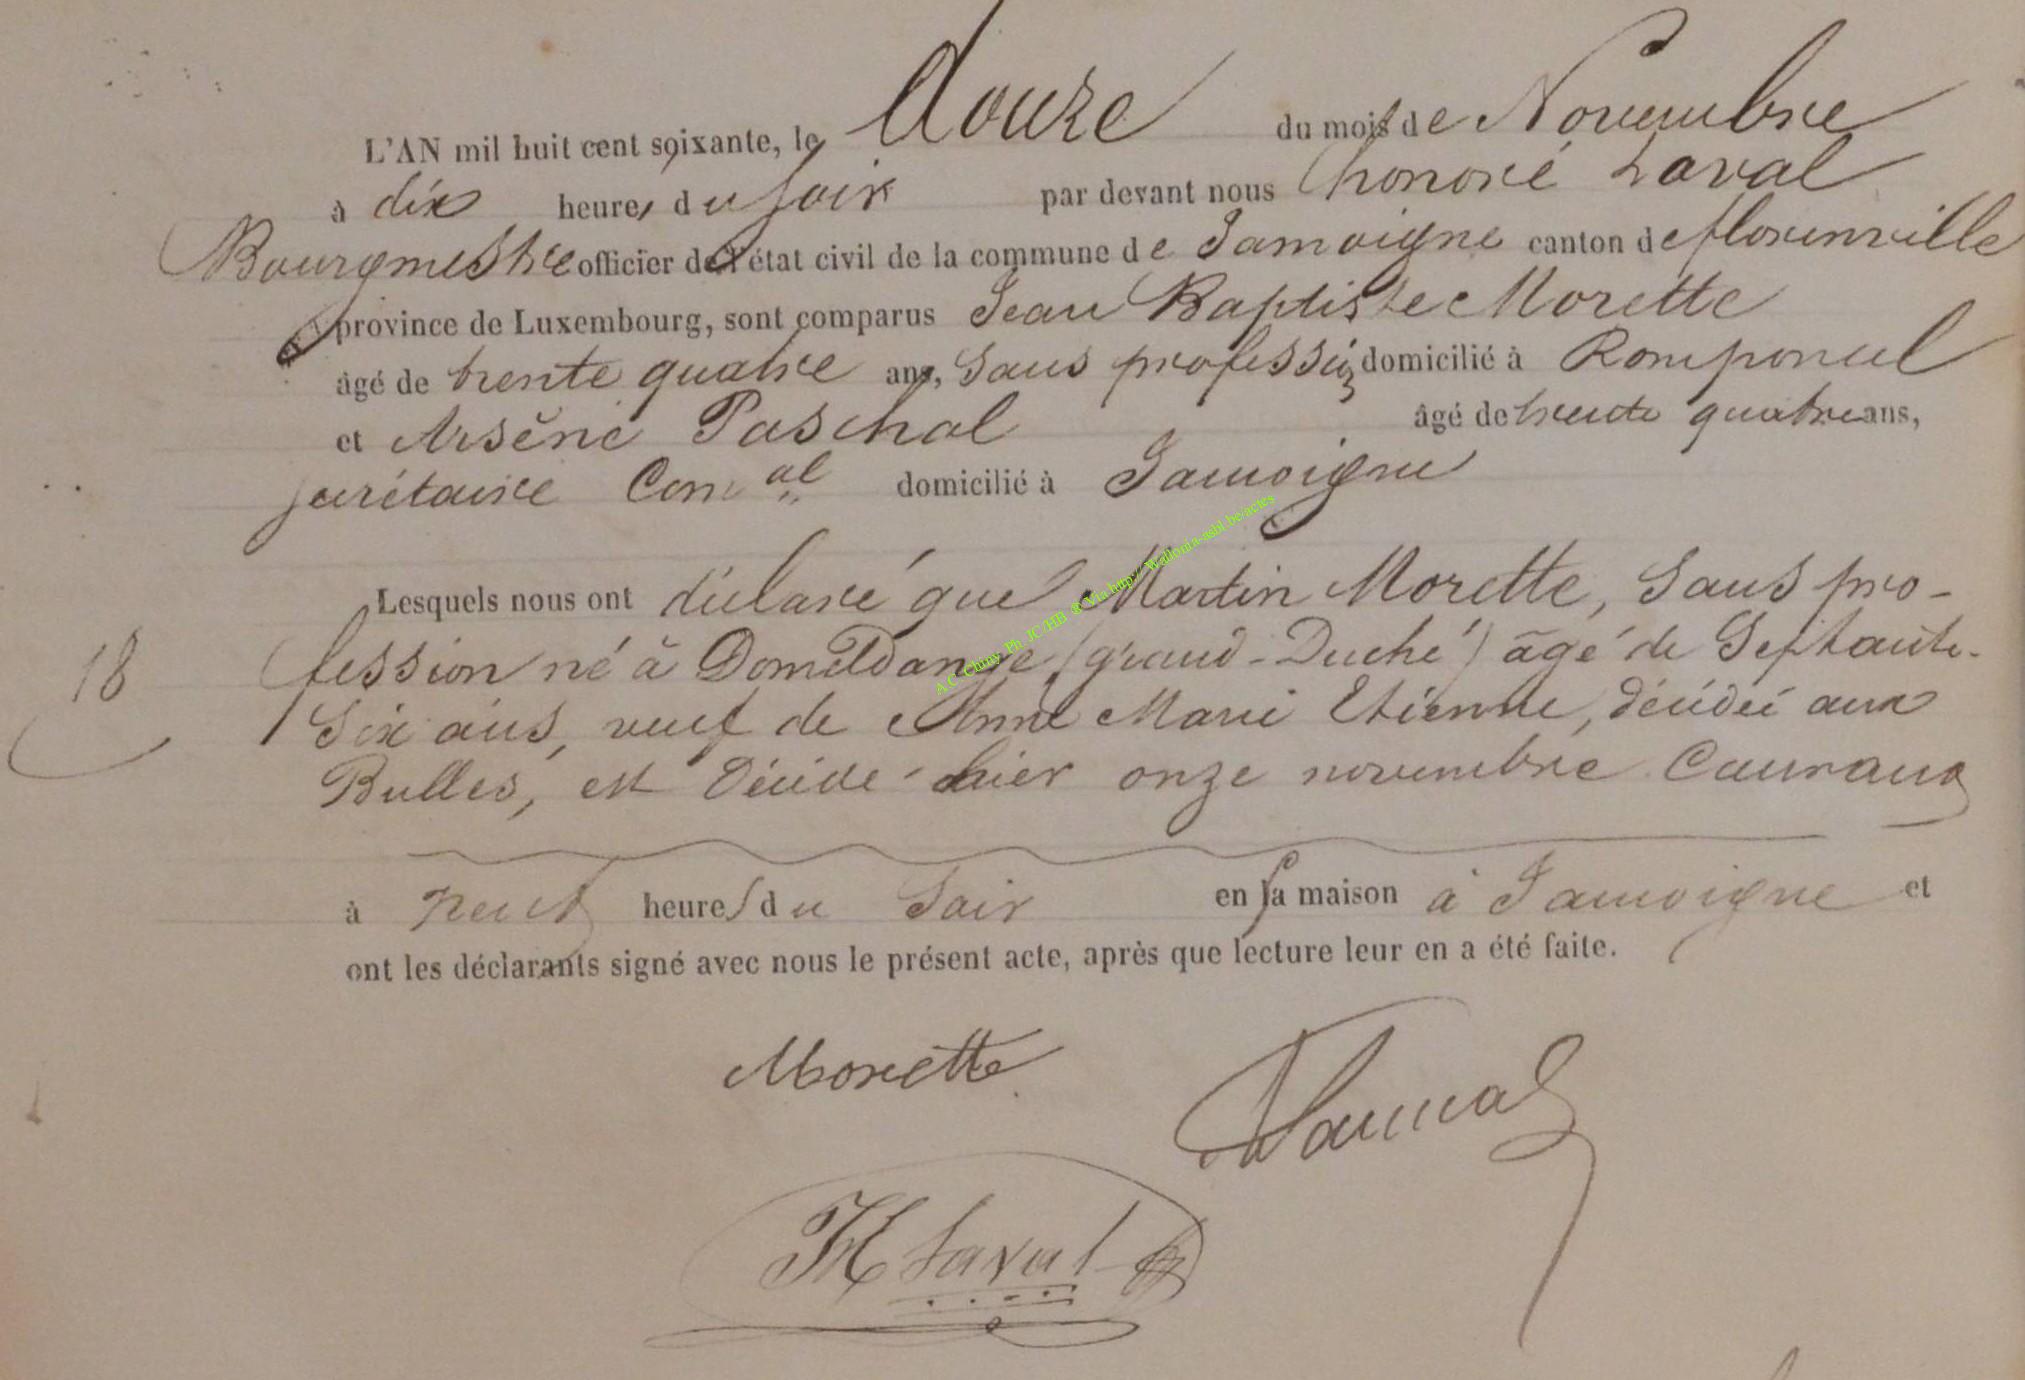 L'AN mil huit cent soixante, le douze du mois de Novembre
à dix heures du soir par devant nous honoré Laval
Bourgmestre officier de l'état civil de la commune de Jamoigne canton de florenville
province de Luxembourg, sont comparus Jean Baptiste Morette
âgé de trente quatre ans, sans profession domicilié à Romponcel
et Arsène Paschal âgé de trente quatre ans,
secrétaire Comal domicilié à Jamoigne
Lesquels nous ont déclaré que Martin Morette, sans pro-
18 fession né à Domeldange (grand-Duché) âgé de Septante-
Six ans, veuf de Anne Marie Etienne, décédée aux
Bulles, est décédé hier onze novembre Courant
à neuf heures du Soir en sa maison à Jamoigne et
ont les déclarants signé avec nous le présent acte, après que lecture leur en a été faite.
Morette
H Laval
A.C. Chiny Ph JC/HB © Via http://Wallonia-asbl.be/actes